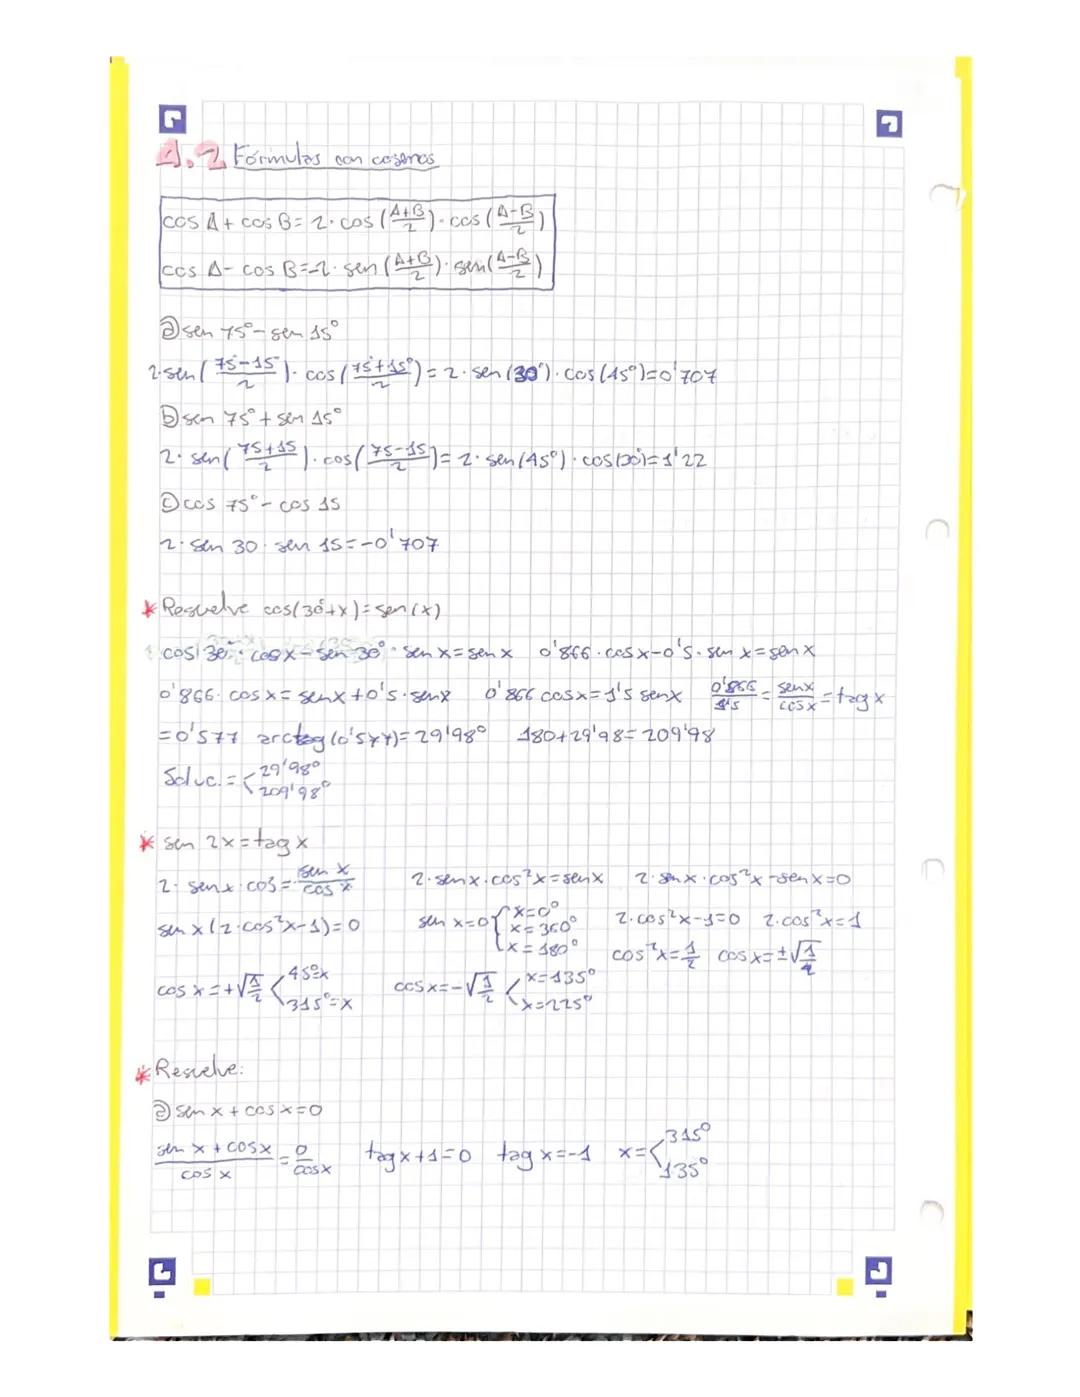 4.2 Fórmulas con cosenos
cos A + cos B = 2 · cos (A+B/2) · cos (A-B/2)
cos A - cos B = -2 · sen (A+B/2) · sen (A-B/2)
a) sen 75° - sen 15°
2·sen (75°-15°/2) · cos (75°+15°/2) = 2 · sen (30°) · cos (45°) = 0'707
b) sen 75° + sen 15°
2 · sen (75+15/2) · cos (75-15/2) = 2 · sen (45°) · cos (30°) = 1'22
c) cos 75° - cos 15
2 · sen 30 · sen 15 = -0'707
* Resuelve cos(30°+x) = sen (x)
cos 30° · cos x - sen 30° · sen x = sen x 0'866 · cos x - 0'5 · sen x = sen x
0'866 · cos x = sen x + 0'5 · sen x 0'866 cos x = 1'5 sen x 0'866/1'5 = sen x/cos x = tag x
= 0'577 arctag (0'577) = 29'98° 180 + 29'98 = 209'98
Soluc. = < 29'98°
209'98°
* sen 2x = tag x
2 · sen x · cos = sen x/cos x 2 · sen x · cos²x = sen x 2 · sen x · cos²x - sen x = 0
sen x (2 · cos²x - 1) = 0 sen x = 0 { x = 0° x = 360° x = 180° 2 · cos²x - 1 = 0 2 · cos²x = 1
cos²x = 1/2 cos x = ±√1/2
cos x = +√1/2 < 45° = x 315° = x cos x = -√1/2 < x = 135° x = 225°
* Resuelve:
a) sen x + cos x = 0
sen x + cos x/cos x = 0/cos x tag x + 1 = 0 tag x = -1 x = < 315° 135°